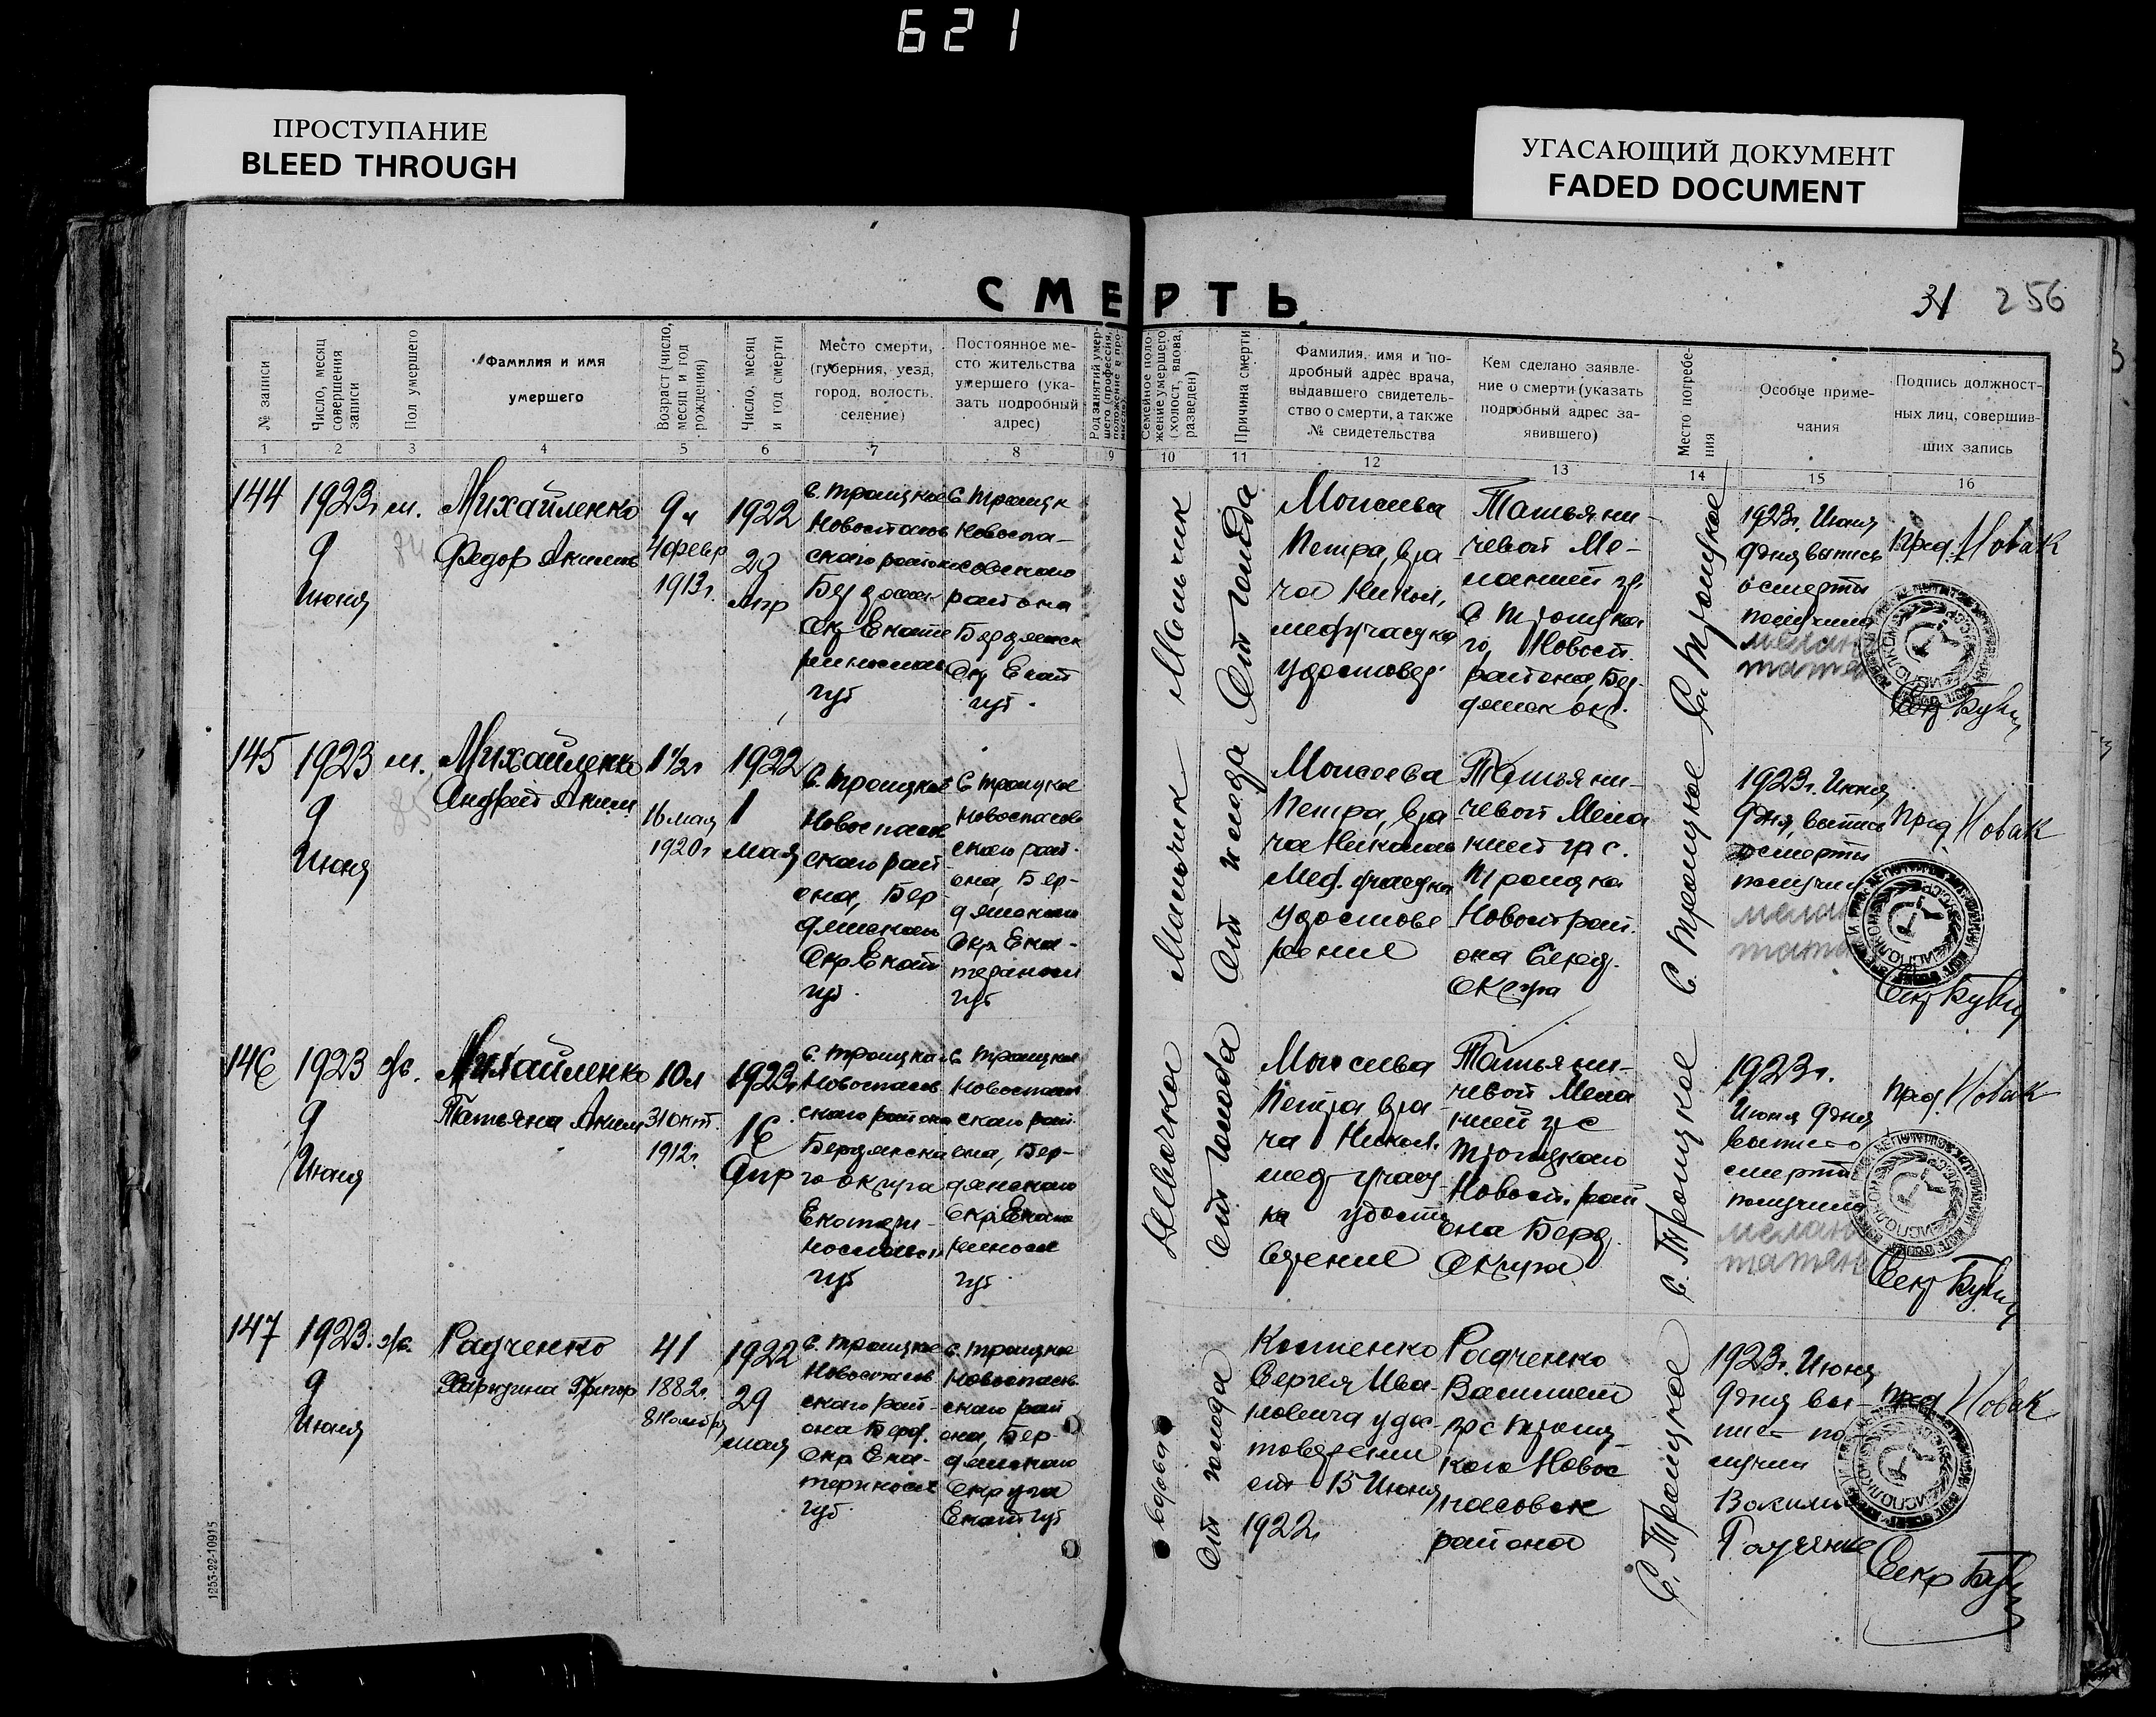 621
ПРОСТУПАНИЕ
BLEED THROUGH
УГАСАЮЩИЙ ДОКУМЕНТ
FADED DOCUMENT
СМЕРТЬ
31 256
№ записи
Число, месяц
совершения
записи
Пол умершего
Фамилия и имя
умершего
Возраст (число,
месяц и год
рождения)
Число, месяц
и год смерти
Место смерти,
(губерния, уезд,
город, волость,
селение)
Постоянное ме-
сто жительства
умершего (ука-
зать подробный
адрес)
Род занятий умер-
шего (профессия,
положение в про-
мысле)
Семейное поло-
жение умершего
(холост, вдова,
разведен)
Причина смерти
Фамилия, имя и по-
дробный адрес врача,
выдавшего свидетель-
ство о смерти, а также
№ свидетельства
Кем сделано заявле-
ние о смерти (указать
подробный адрес за-
явившего)
Место погребе-
ния
Особые приме-
чания
Подпись должност-
ных лиц, совершив-
ших запись
1 2 3 4 5 6 7 8 9 10 11 12 13 14 15 16
144
1923г.
9
Июня
м.
Михайленко
Федор Яким
9 л
4 февр
1913г.
1922
29
Апр
с. Троицкое
Новоспасов
ского района
Бердян
Окр Екате
ринослав
губ
с. Троицк
Новоспа-
совского
района
Бердянск
Окр Екат
губ.
Мальчик
От голода
Моисеева
Петра, вра
ча Никол,
медучастка
удостовер
Татьяни-
чевой Ме-
ланией гр.
с Троицко
го, Новосп.
района, Бер-
дянск окр.
с. Троицкое
1923г. Июня
9 дня выпись
о смерти
получила
Пред. Новак
145
1923
9
Июня
м.
Михайленко
Андрей Яким
1 1/2 г
16 мая
1920г
1922
1
Мая
с. Троицкое
Новоспасов
ского рай
она, Бер-
дянского
Окр Екат
губ.
с Троицкое
Новоспасов
ского рай-
она, Бер-
дянского
Окр Ека-
терином
губ
Мальчик
От голода
Моисеева
Петра, вра
ча Николаев
Мед. участка
удостове
рение
Татьяни-
чевой Мела
нией гр с.
Троицка
Новосп рай.
она Берд.
Округа
с. Троицкое
1923г. Июня
9 дня, выпись
о смерти
получила
Пред Новак
146
1923
9
Июня
ж.
Михайленко
Татьяна Яким
10 л
31 окт.
1912г.
1922г
16
Апр
с. Троицкое
Новоспасов
ского района
Бердянско
го округа
Екатери-
нославск
губ
с. Троицкое
Новоспасов
ского рай.
она, Бер-
дянского
Окр Екате
ринослав
губ.
Девочка
От голода
Моисеева
Петра вра
ча Никол.
мед участ
ка удосто
верение
Татьяни-
чевой Мела
нией гр с
Троицкого
Новосп. рай
она Берд.
Округа
с. Троицкое
1923г.
Июня 9 дня
выпись о
смерти
получила
Пред. Новак
147
1923.
9
Июня
ж.
Радченко
41
1882г.
1922
29
мая
с. Троицкое
Новоспасов
ского рай-
она Берд.
окр Ека-
теринослав
губ.
с. Троицкое
Новоспасов
ского рай
она, Бер-
дянского
Округа
Екат губ
вдова
От голода
Костенко
Сергея Ива-
новича удос-
товерении
от 15 Июня
1922г
Радченко
Василием
гр с Троиц-
кого Новос
пасовск
района
С. Троицкое
1923г. Июня
9 дня вы-
пись по-
лучил
Радченко
Пред Новак
1253-22-10915